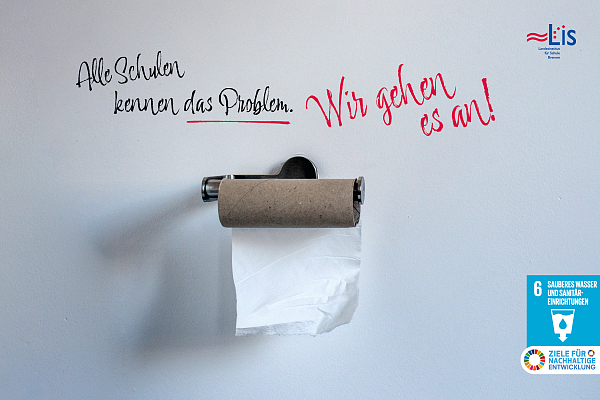 Alle Schulen
kennen das Problem.
Wir gehen
es an!
LiS
Landesinstitut
für Schule
Bremen
6 SAUBERES WASSER
UND SANITÄR-
EINRICHTUNGEN
ZIELE FÜR
NACHHALTIGE
ENTWICKLUNG